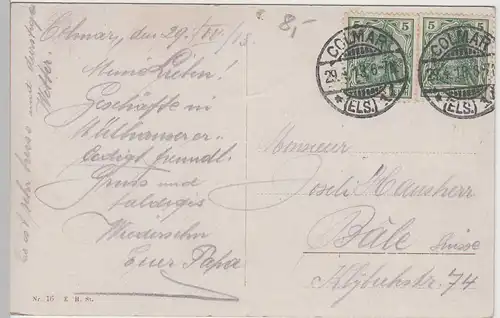 Colmar, den 29./IV/13.
8,-
Meine Lieben!
Geschäfte in
Mülhausen er-
ledigt freundl.
Gruss und
baldiges
Wiedersehn
Euer Papa
Es ist sehr heiss und durstiges
Wetter.
5 5
5 5
COLMAR
29.4.13.6-7N
(ELS.)
COLMAR
(ELS.)
Monsieur
Hausherr
Bâle Suisse
Klybeckstr. 74
Nr. 16